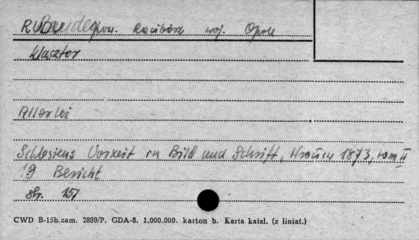 Rudy pow. Racibórz woj. Opole
Klasztor
Allerlei
Schlesiens Vorzeit in Bild und Schrift, 1873, tom II
19 Bericht
Str. 151
CWD B-15b.zam. 2899/P. GDA-8. 1,000,000. karton b. Karta katal. (z liniat.)